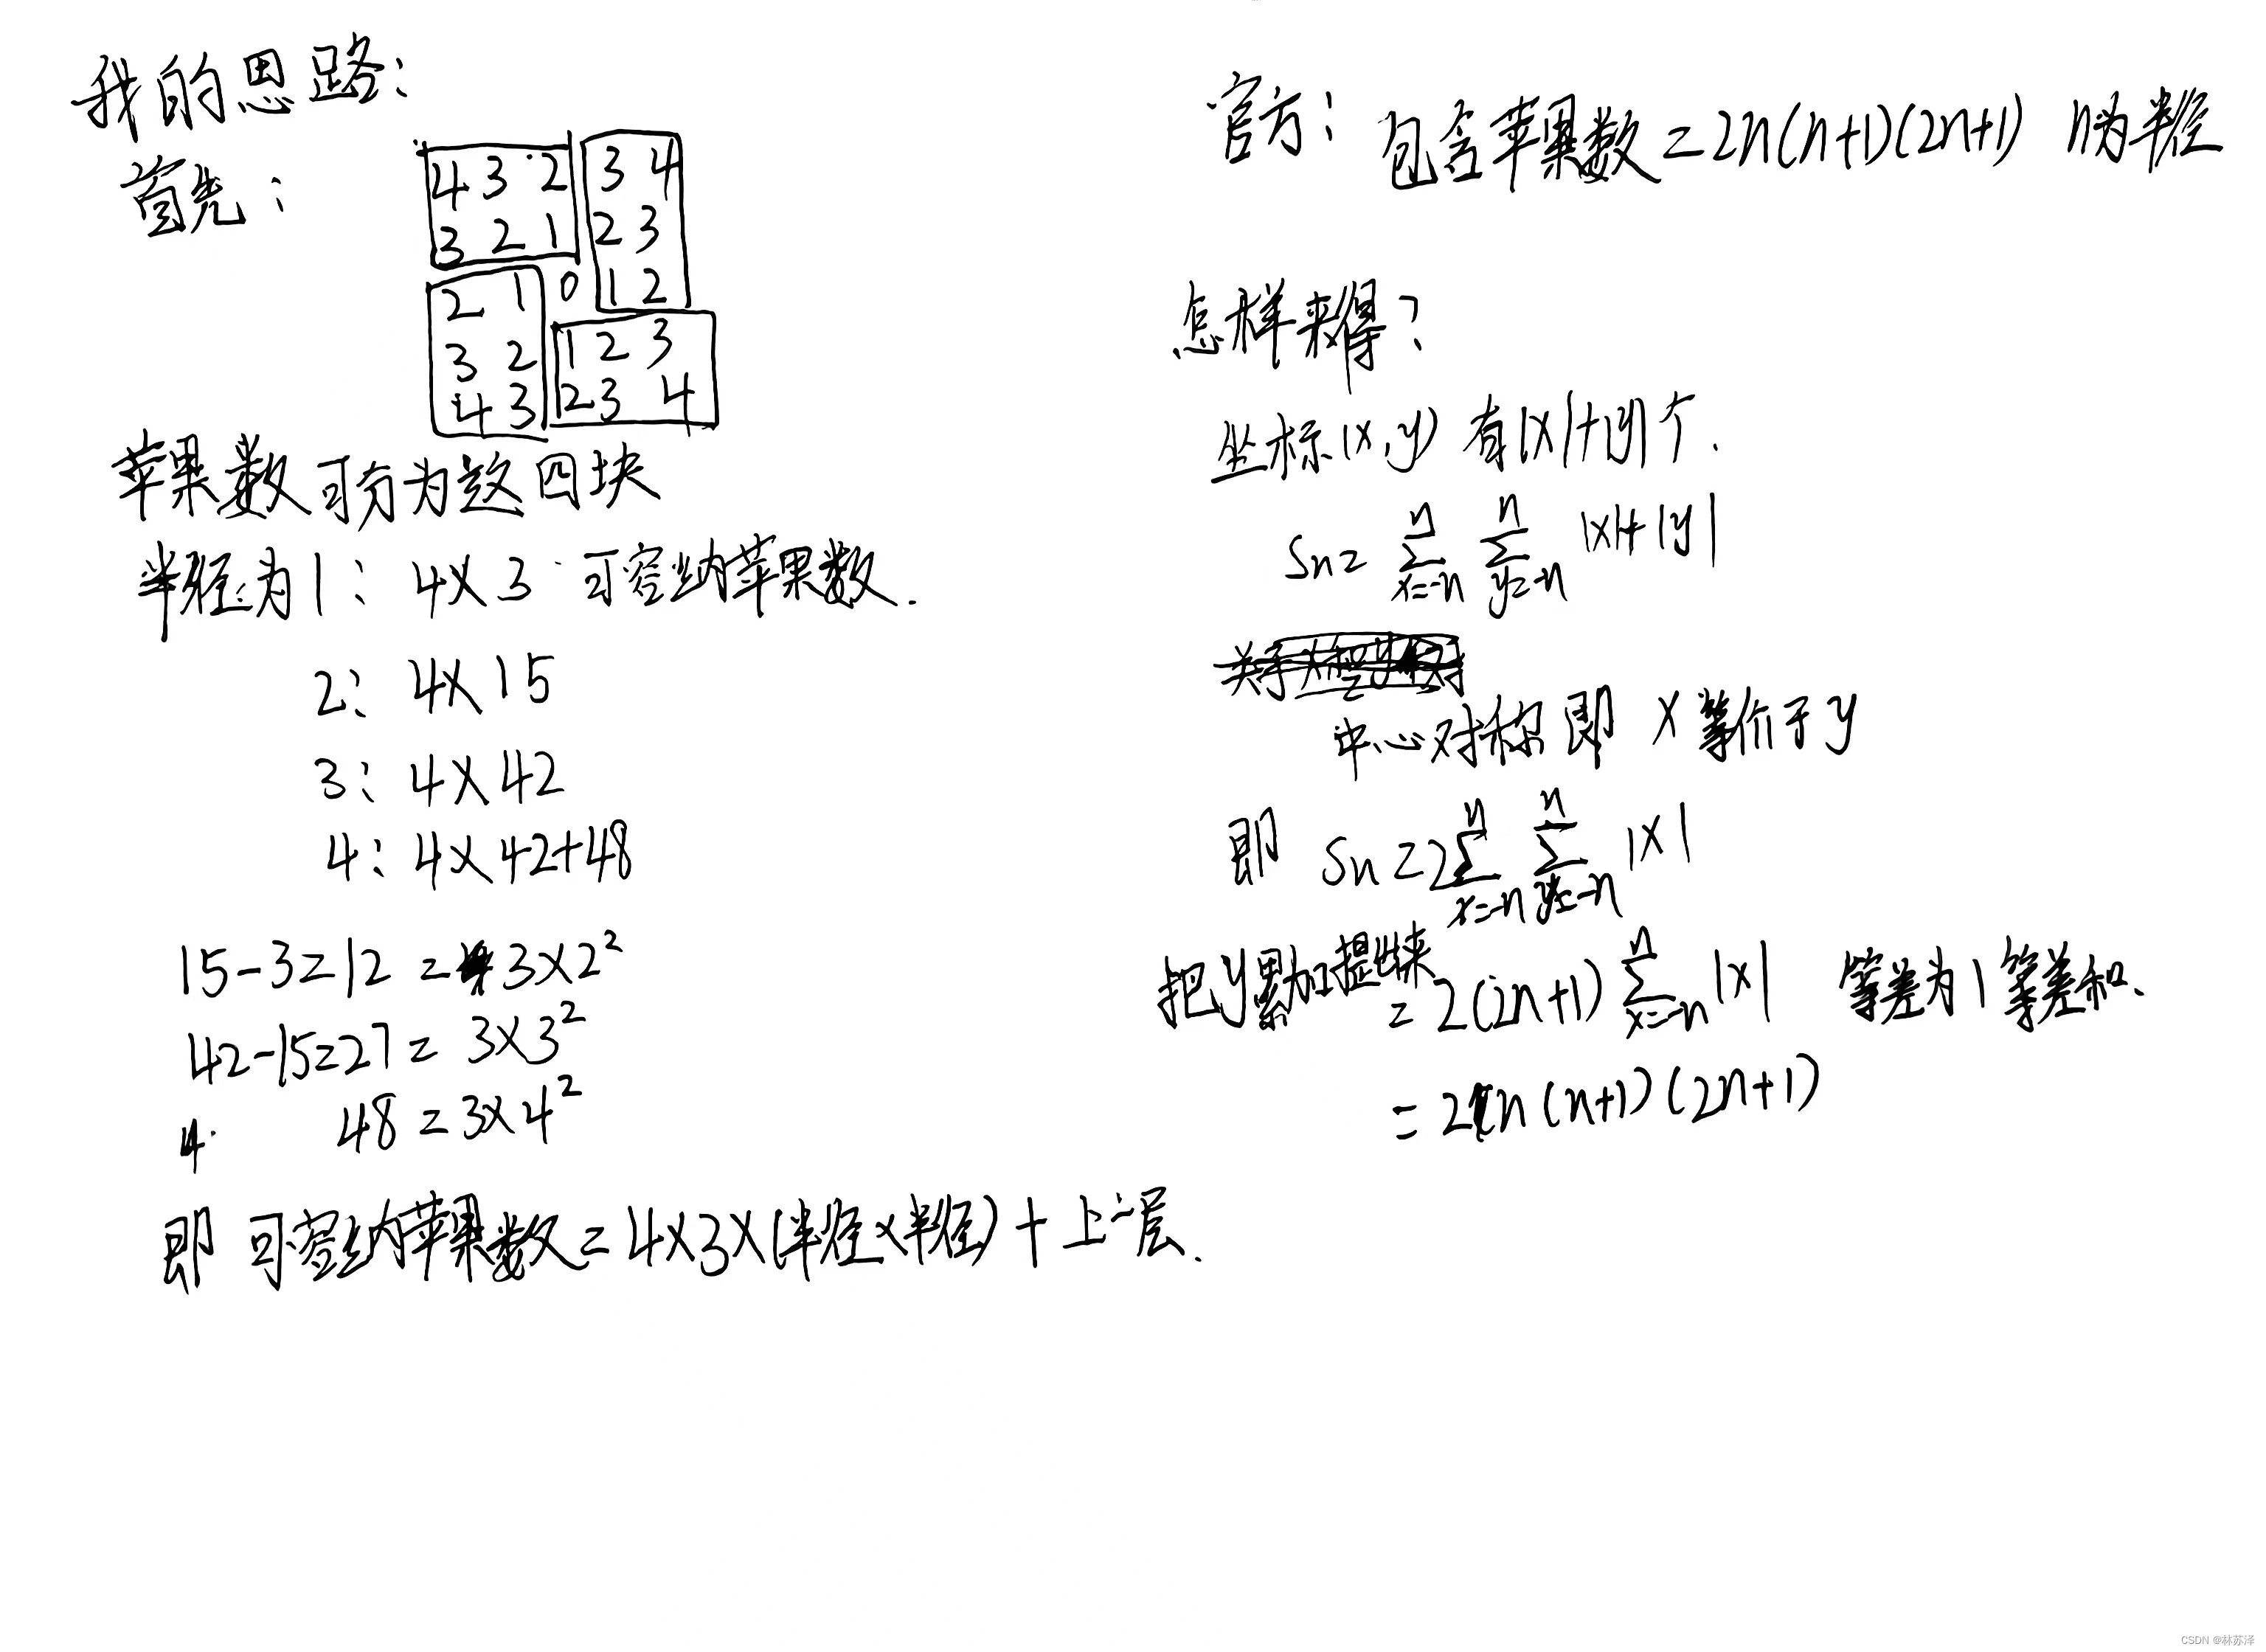 我的思路:
首先:
4 3 2 3 4
3 2 1 2 3
2 1 0 1 2
3 2 1 2 3
4 3 2 3 4
苹果数可分为这四块
半径为1: 4×3 可容纳苹果数.
2: 4×15
3: 4×42
4: 4×42+48
15-3=12 = 3×2²
42-15=27 = 3×3²
4. 48=3×4²
即 可容纳苹果数=4×3×(半径×半径)+上一层.
官方: 包含苹果数=2n(n+1)(2n+1) n为半径
怎样来得?
坐标(x,y) 有|x|+|y|个.
Sn= n∑x=-n n∑y=-n |x|+|y|
中心对称 即 x等价于y
即 Sn=2 n∑x=-n n∑y=-n |x|
把y累加提出来 = 2(2n+1) n∑x=-n |x| 等差为1等差和.
= 2n(n+1)(2n+1)
CSDN @林苏泽